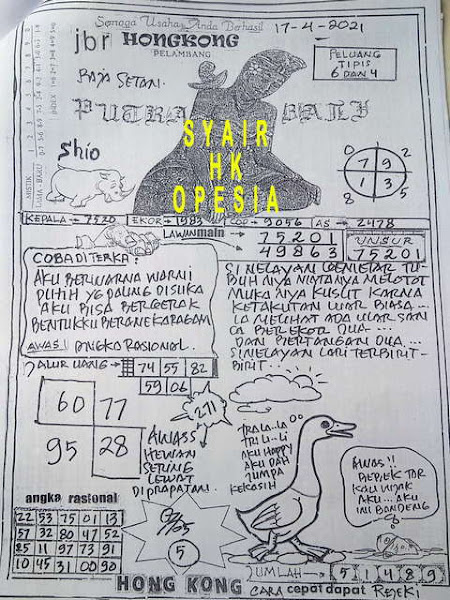 Semoga Usaha Anda Berhasil
17-4-2021
jbr HONGKONG
PELAMBANG
PELUANG
TIPIS
6 DAN 4
RAJA SETAN.
PUTRA
SYAIR
HK
OPESIA
Shio
0 2
7 9
1 3
8 5
KEPALA → 7520 EKOR → 1983 9056 AS → 2478
LAWAN main
75201
49863
UNSUR
75201
COBA DITERKA:
AKU BERWARNA WARNI
PUTIH YG PALING DISUKA
AKU BISA BERGERAK
BENTUKKU BERANEKA RAGAM
AWAS! ANGKA RASIONAL.
SI NELAYAN GEMETAR TU-
BUH NYA MATANYA MELOTOT
MUKA NYA KUSUT KARNA
KETAKUTAN LUAR BIASA...
IA MELIHAT ADA ULAR SAN
CA BEREKOR DUA...
DAN BERTANGAN DUA...
SI NELAYAN LARI TERBIRIT-
BIRIT...
JALUR UANG → 74 55 82
59 06
60 77
95 28
271
AWASS
HEWAN
SERING
LEWAT
DIPRAPATAN.
TRALA..LA
TRI LI..LI
AKU HAPPY
AKU DAH
JUMPA
KEKASIH
AWAS!!
BEBEK TAR
KAU INJAK
AKU... AKU
INI BANDENG
angka rasional
22 53 75 01 13
57 32 80 47 52
25 11 97 73 91
10 45 31 00 90
5
JUMLAH → 5 1 4 8 9
HONG KONG
CARA cepat dapat REJEKI